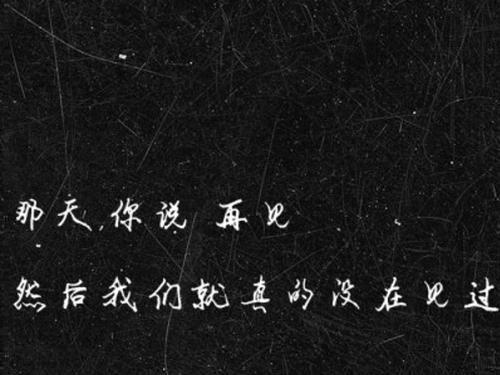 那天,你说 再见
然后我们就真的没在见过